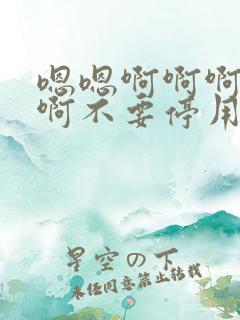 嗯嗯啊啊啊
啊不要停用
星空の下
未经同意禁止转载